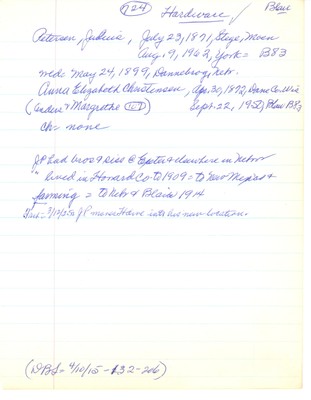 724
Hardware ✓
Blair
Petersen, Julius, July 23, 1871, Stege, Moen
Aug. 9, 1962, York = B83
wed= May 24, 1899, Dannebrog, Nebr.
Anna Elizabeth Christensen, Apr. 30, 1872, Dane Co. Wis
(Anders & Margrethe) Sept. 22, 1950, Blair B83
ch= none
JP had bros & sies @ & elsewhere in Nebr
" lived in Howard Co to 1909 = to New Mexico &
farming = to Nebr & Blair 1914
JP moves Hdwe into his new location.
(DBL= 9/10/15- 132-206)